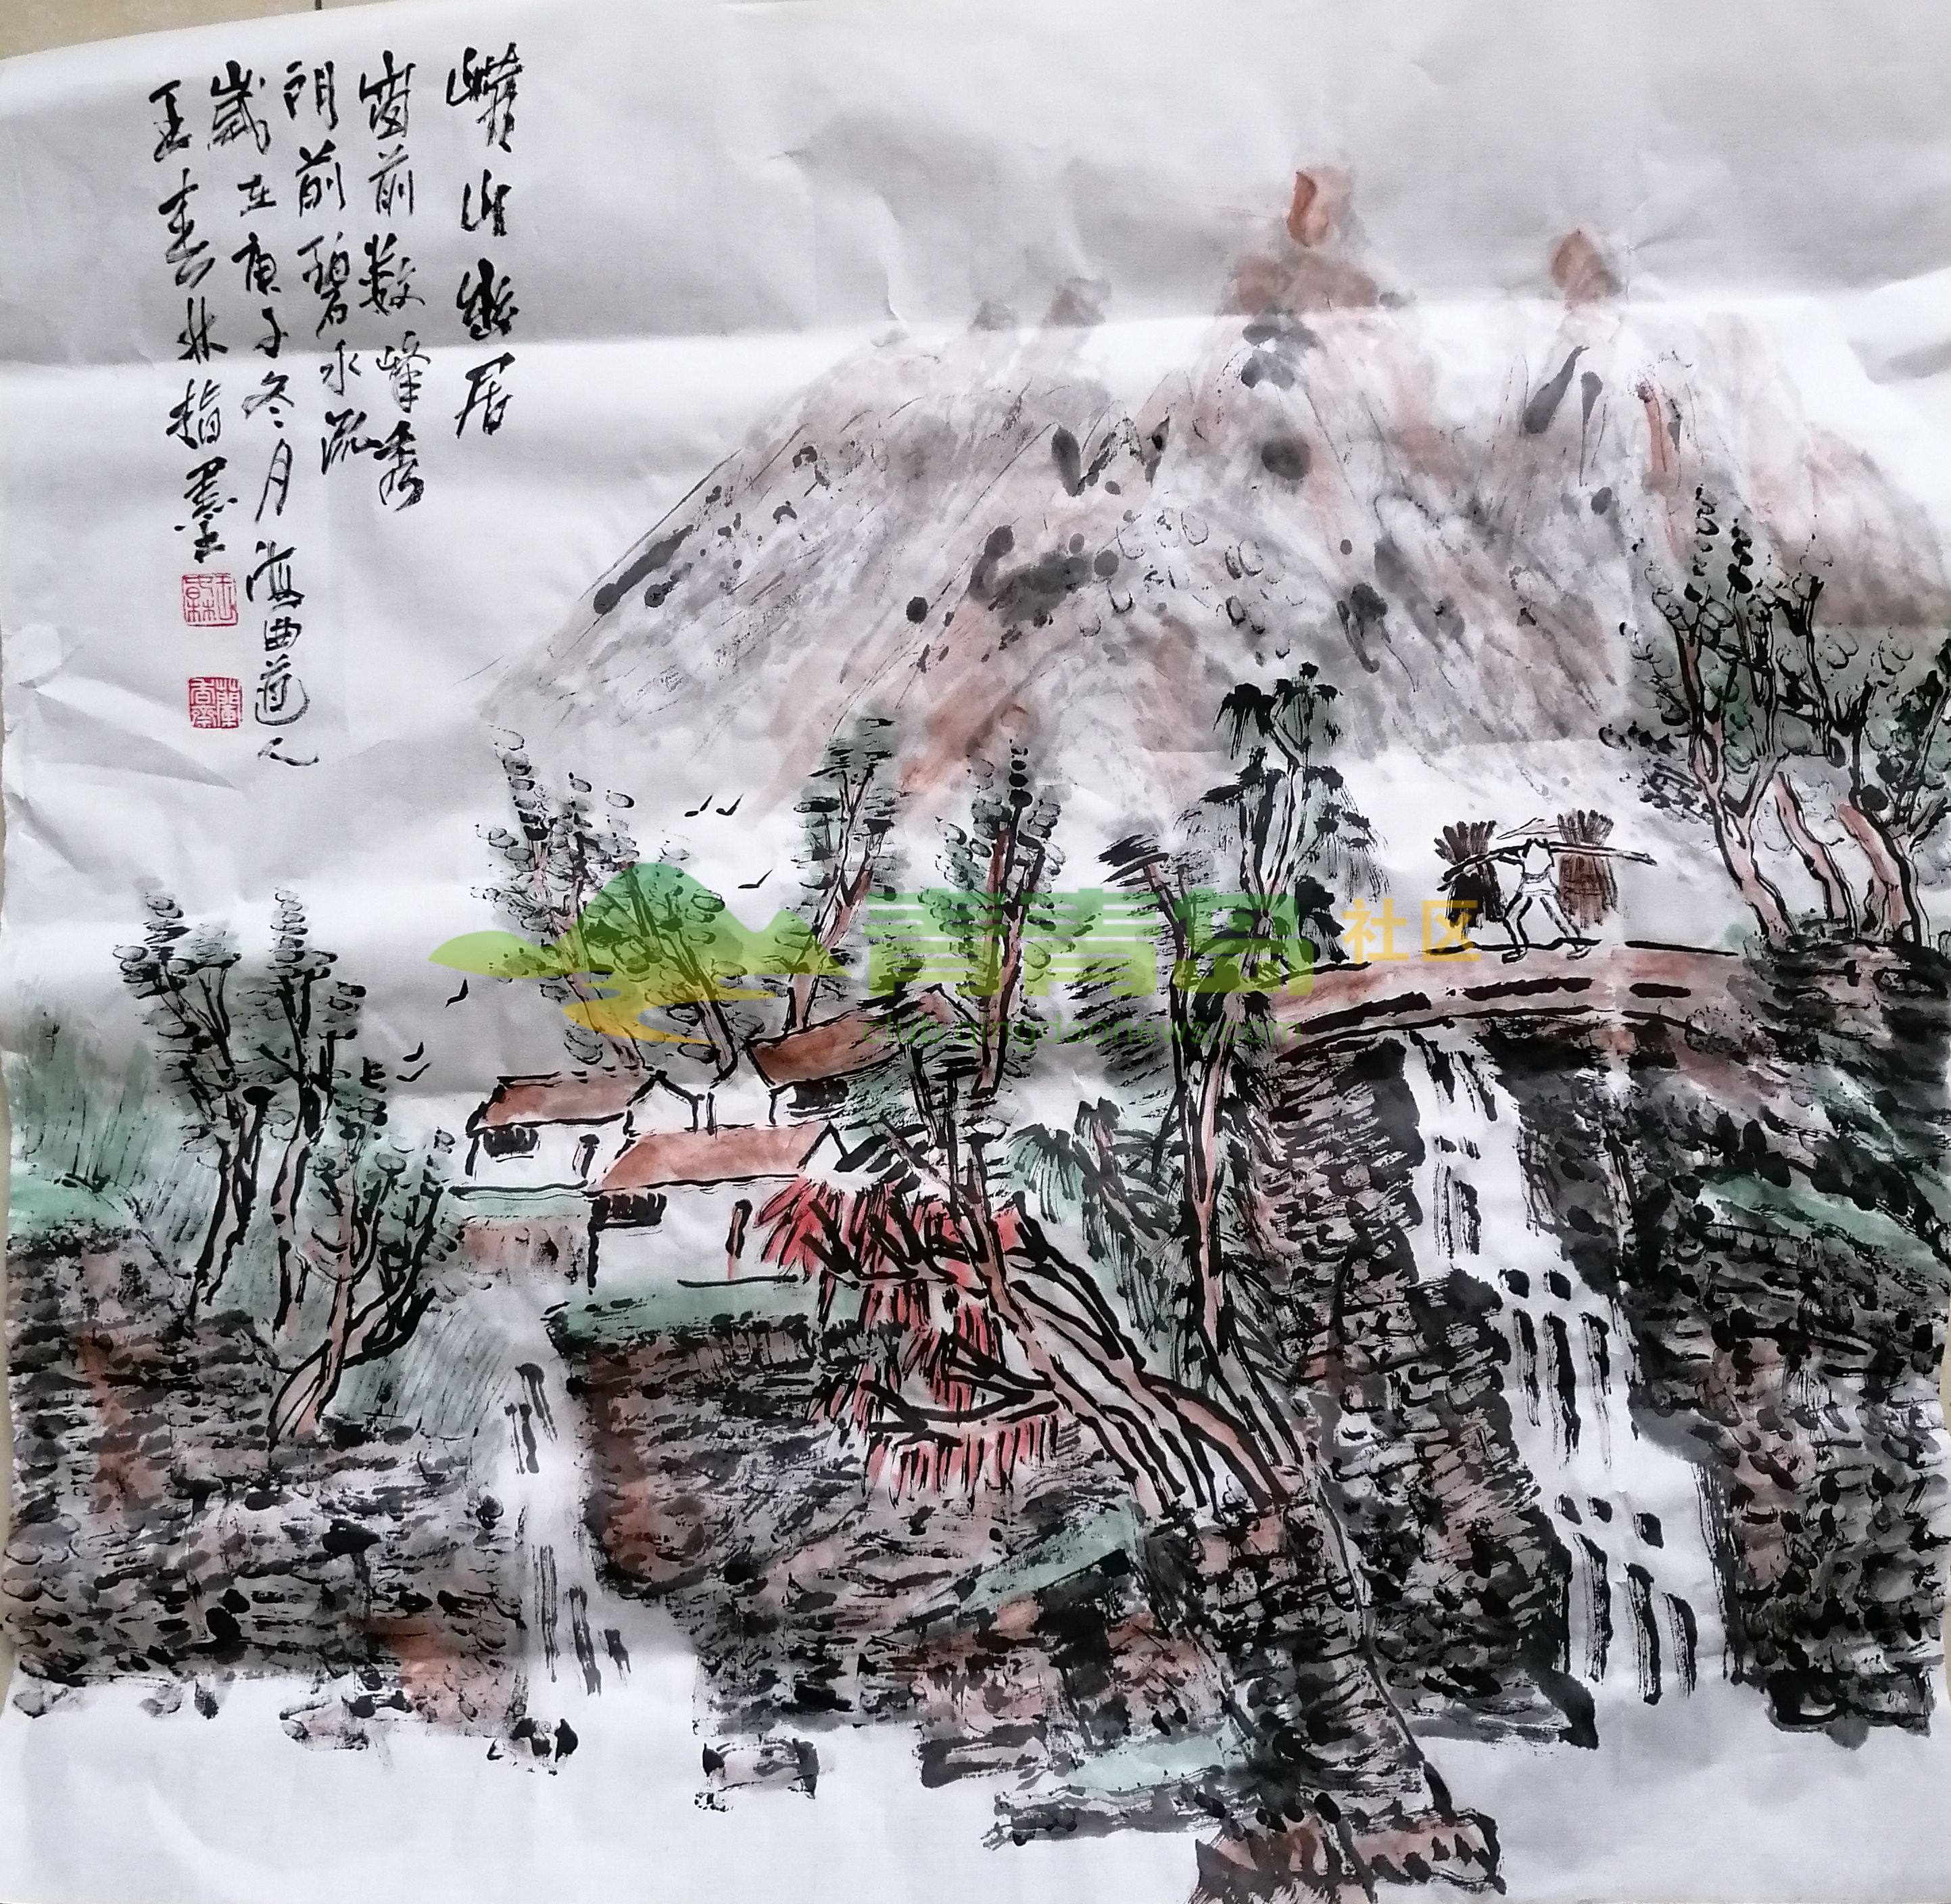 嶗山幽居
窗前数峰秀
門前碧水流
歲在庚子冬月海曲道人
王春林指墨
蘭香齋
青青岛社区
club.qingdaonews.com